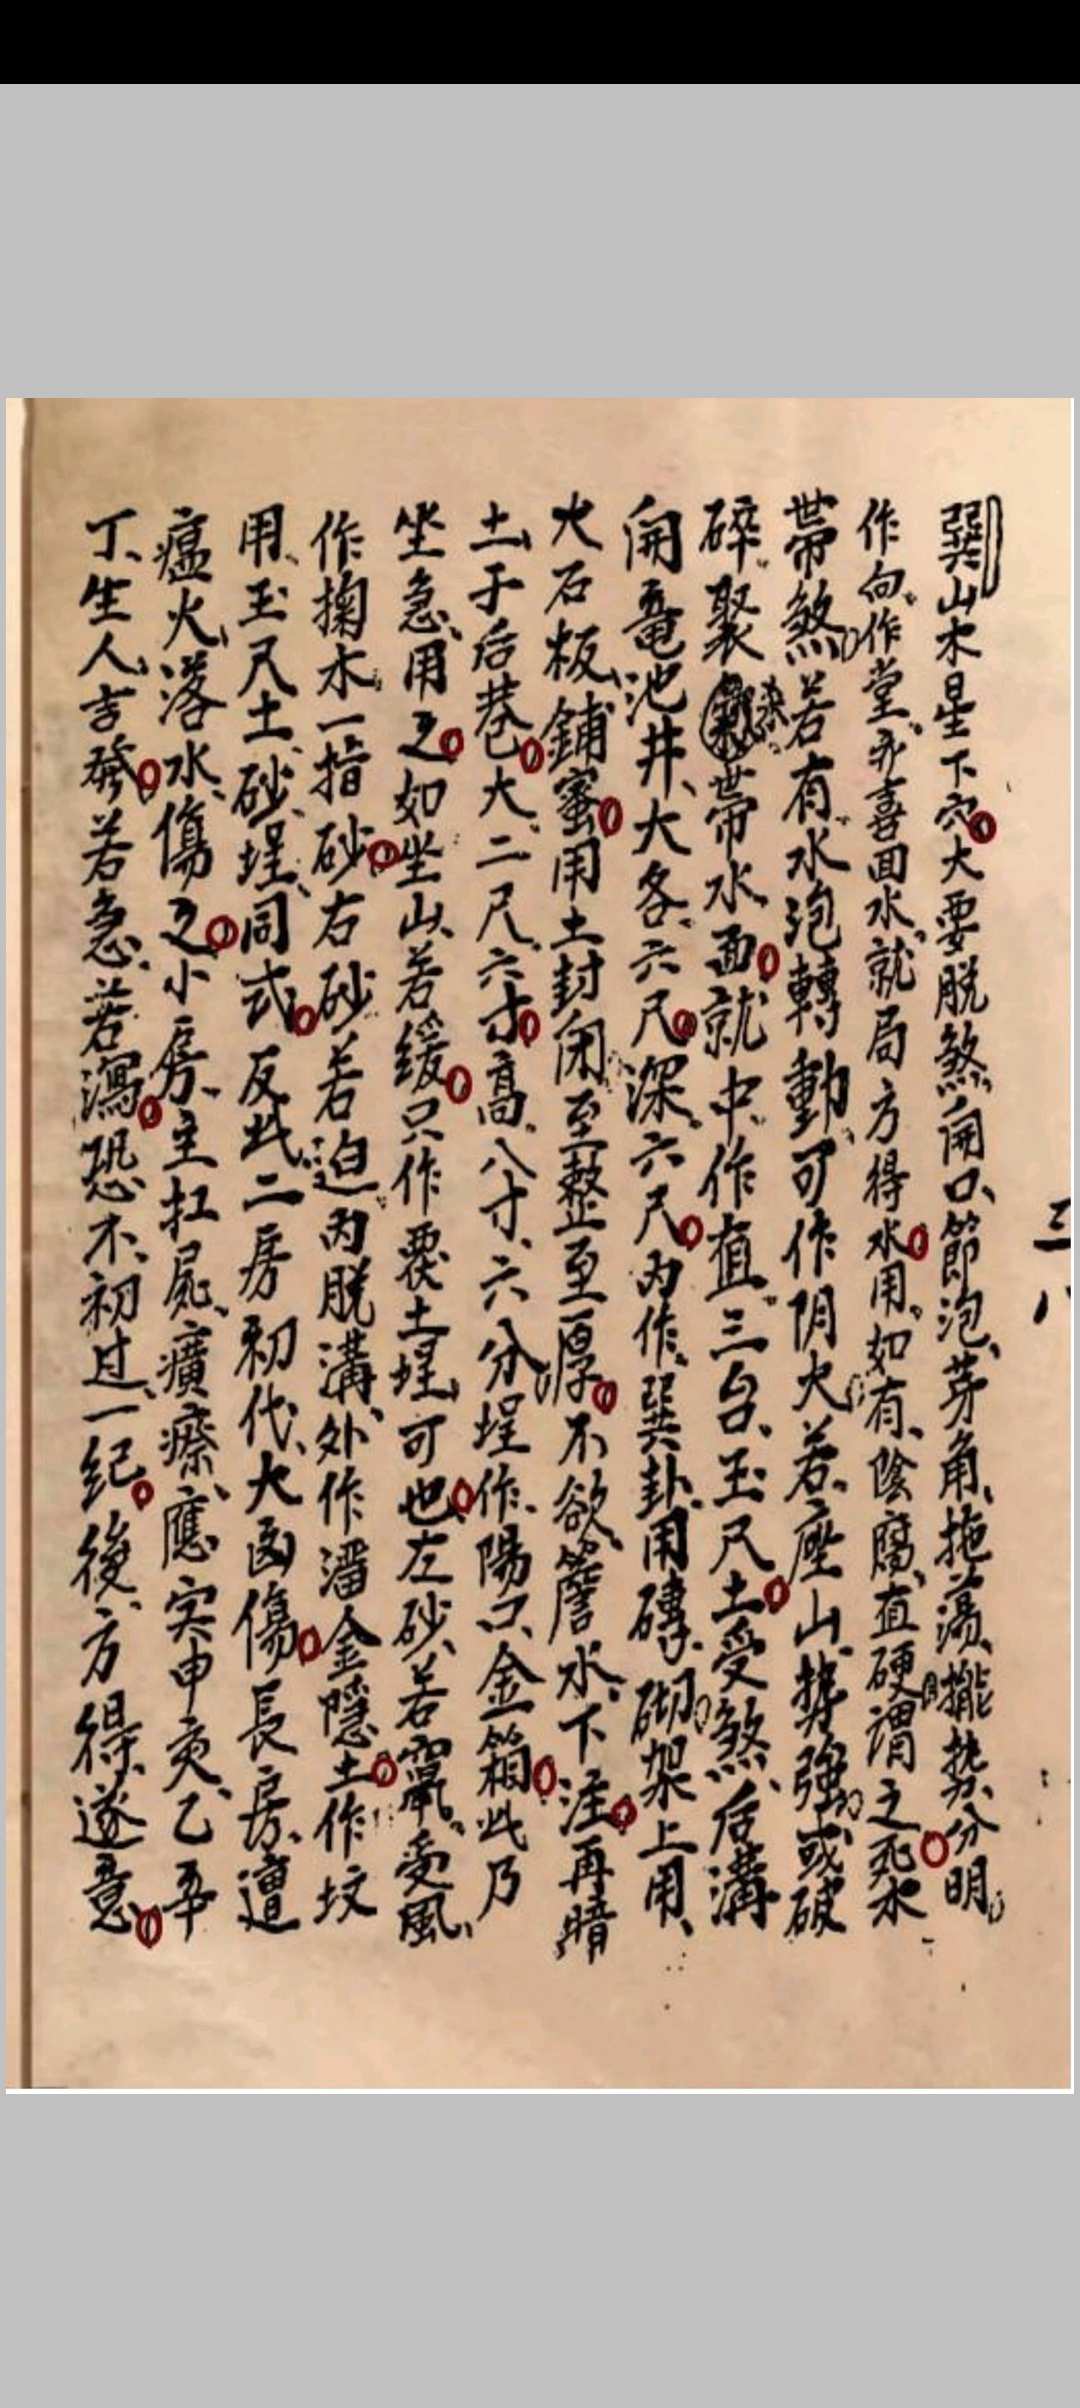 三八
巽山木星下穴大要脱煞開口節泡芽角拖蕩擺勢分明
作向作堂亦喜回水就局方得水用如有陰腐直硬謂之死水
带煞若有水泡轉動可作阴火若座山勢強或破
碎聚带水面就中作直三台玉尺土受煞后溝
開竜池井大各六尺深六尺内作巽卦用磚砌架上用
火石板鋪蜜用土封闭至整至厚不欲簷水下注再晴
土于后巷大二尺六寸高八寸六分埕作陽口金箱此乃
坐急用之如坐山若缓只作土埕可也左砂若受風
作掬木一指砂右砂若迫内脱溝外作潘金隱土作坟
用玉尺土砂埕同式反此二房初代大凶傷長房遭
瘟火落水傷之小房主扛屍癀瘵應寅申亥乙辛
丁生人吉發若急若瀉恐不初过一纪後方得遂意